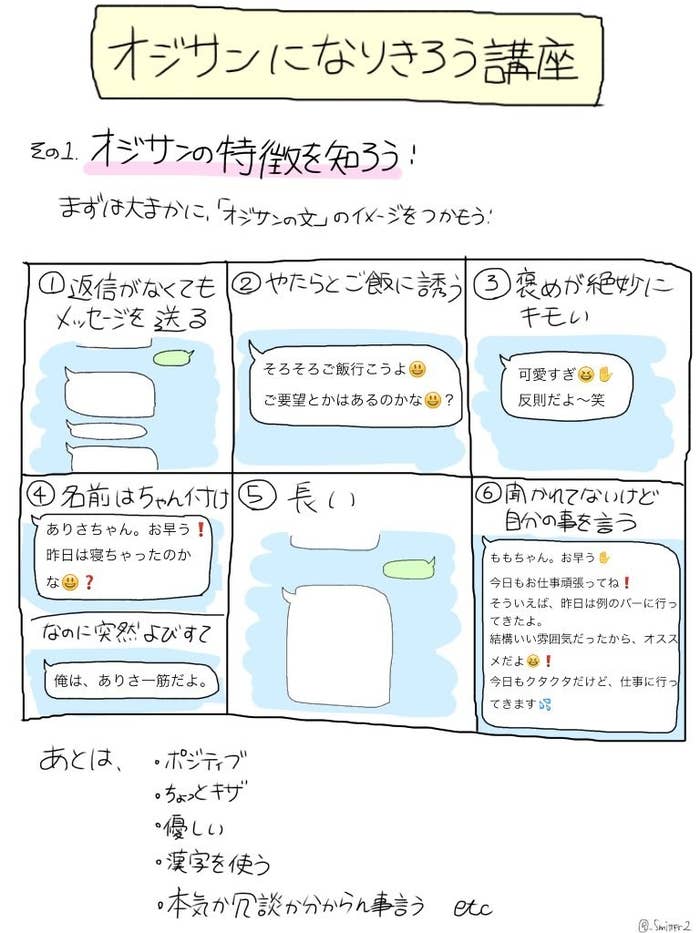 オジサンになりきろう講座
その1. オジサンの特徴を知ろう!
まずは大まかに、「オジサンの文」のイメージをつかもう!
①返信がなくても
メッセージを送る
②やたらとご飯に誘う
そろそろご飯行こうよ😃
ご要望とかはあるのかな😃?
③褒めが絶妙に
キモい
可愛すぎ😆✋
反則だよ〜笑
④名前はちゃん付け
ありさちゃん。お早う❗
昨日は寝ちゃったのか
な😃❓
なのに突然よびすて
俺は、ありさ一筋だよ。
⑤長い
⑥聞かれてないけど
自分の事を言う
ももちゃん。お早う✋
今日もお仕事頑張ってね❗
そういえば、昨日は例のバーに行っ
てきたよ。
結構いい雰囲気だったから、オスス
メだよ😆❗
今日もクタクタだけど、仕事に行っ
てきます💦
あとは、
・ポジティブ
・ちょっとキザ
・優しい
・漢字を使う
・本気か冗談か分からん事言う etc